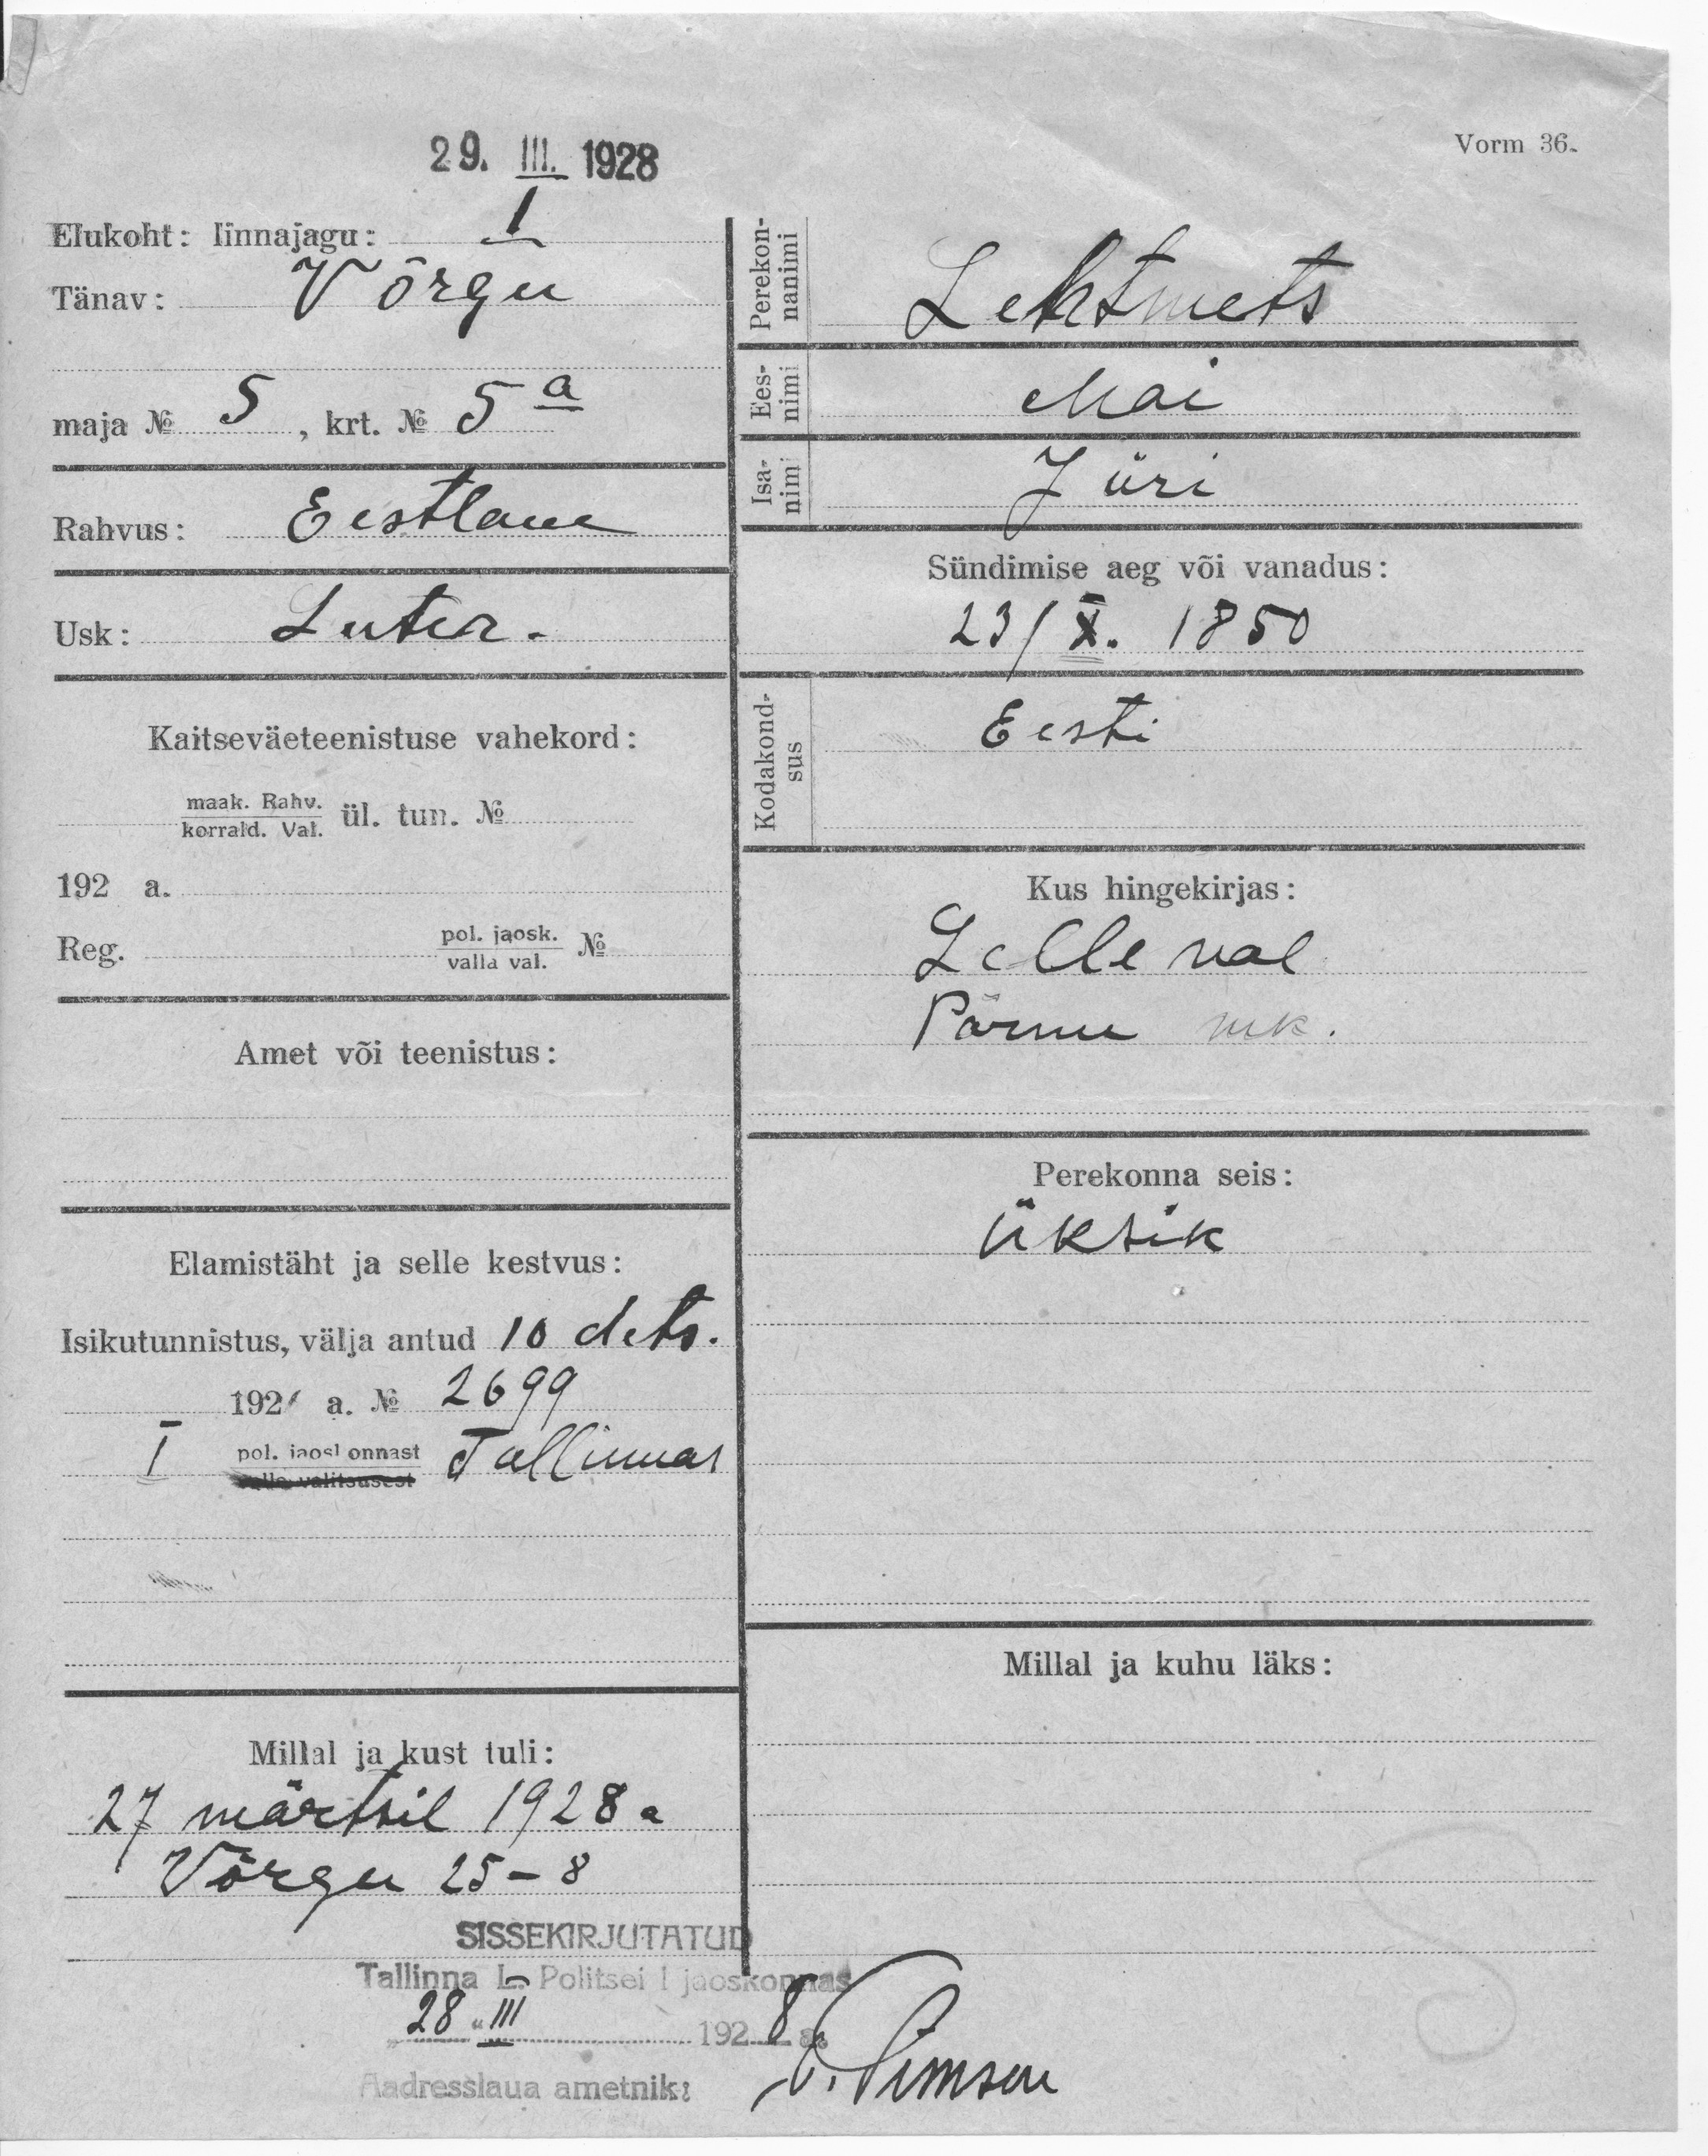 29. III. 1928
Vorm 36.
Elukoht: linnajagu: I
Tänav: Võrgu
maja № 5, krt. № 5 a
Rahvus: Eestlane
Usk: Luter.
Kaitseväeteenistuse vahekord:
maak. Rahv.
korrald. Val.
ül. tun. №
192 a.
Reg. pol. jaosk. №
valla val.
Amet või teenistus:
Elamistäht ja selle kestvus:
Isikutunnistus, välja antud 10 dets.
192 a. № 2699
I pol. jaoskonnast Tallinnas
valla valitsusest
Millal ja kust tuli:
27 märtsil 1928 a
Võrgu 25-8
Perekon-
nanimi
Lehtmets
Ees-
nimi
Mai
Isa-
nimi
Jüri
Sündimise aeg või vanadus:
23/X. 1850
Kodakond-
sus
Eesti
Kus hingekirjas:
Lelle val
Pärnu mk.
Perekonna seis:
üksik
Millal ja kuhu läks:
SISSEKIRJUTATUD
Tallinna L. Politsei I jaoskonnas
„28" III 1928 a.
Aadresslaua ametnik: